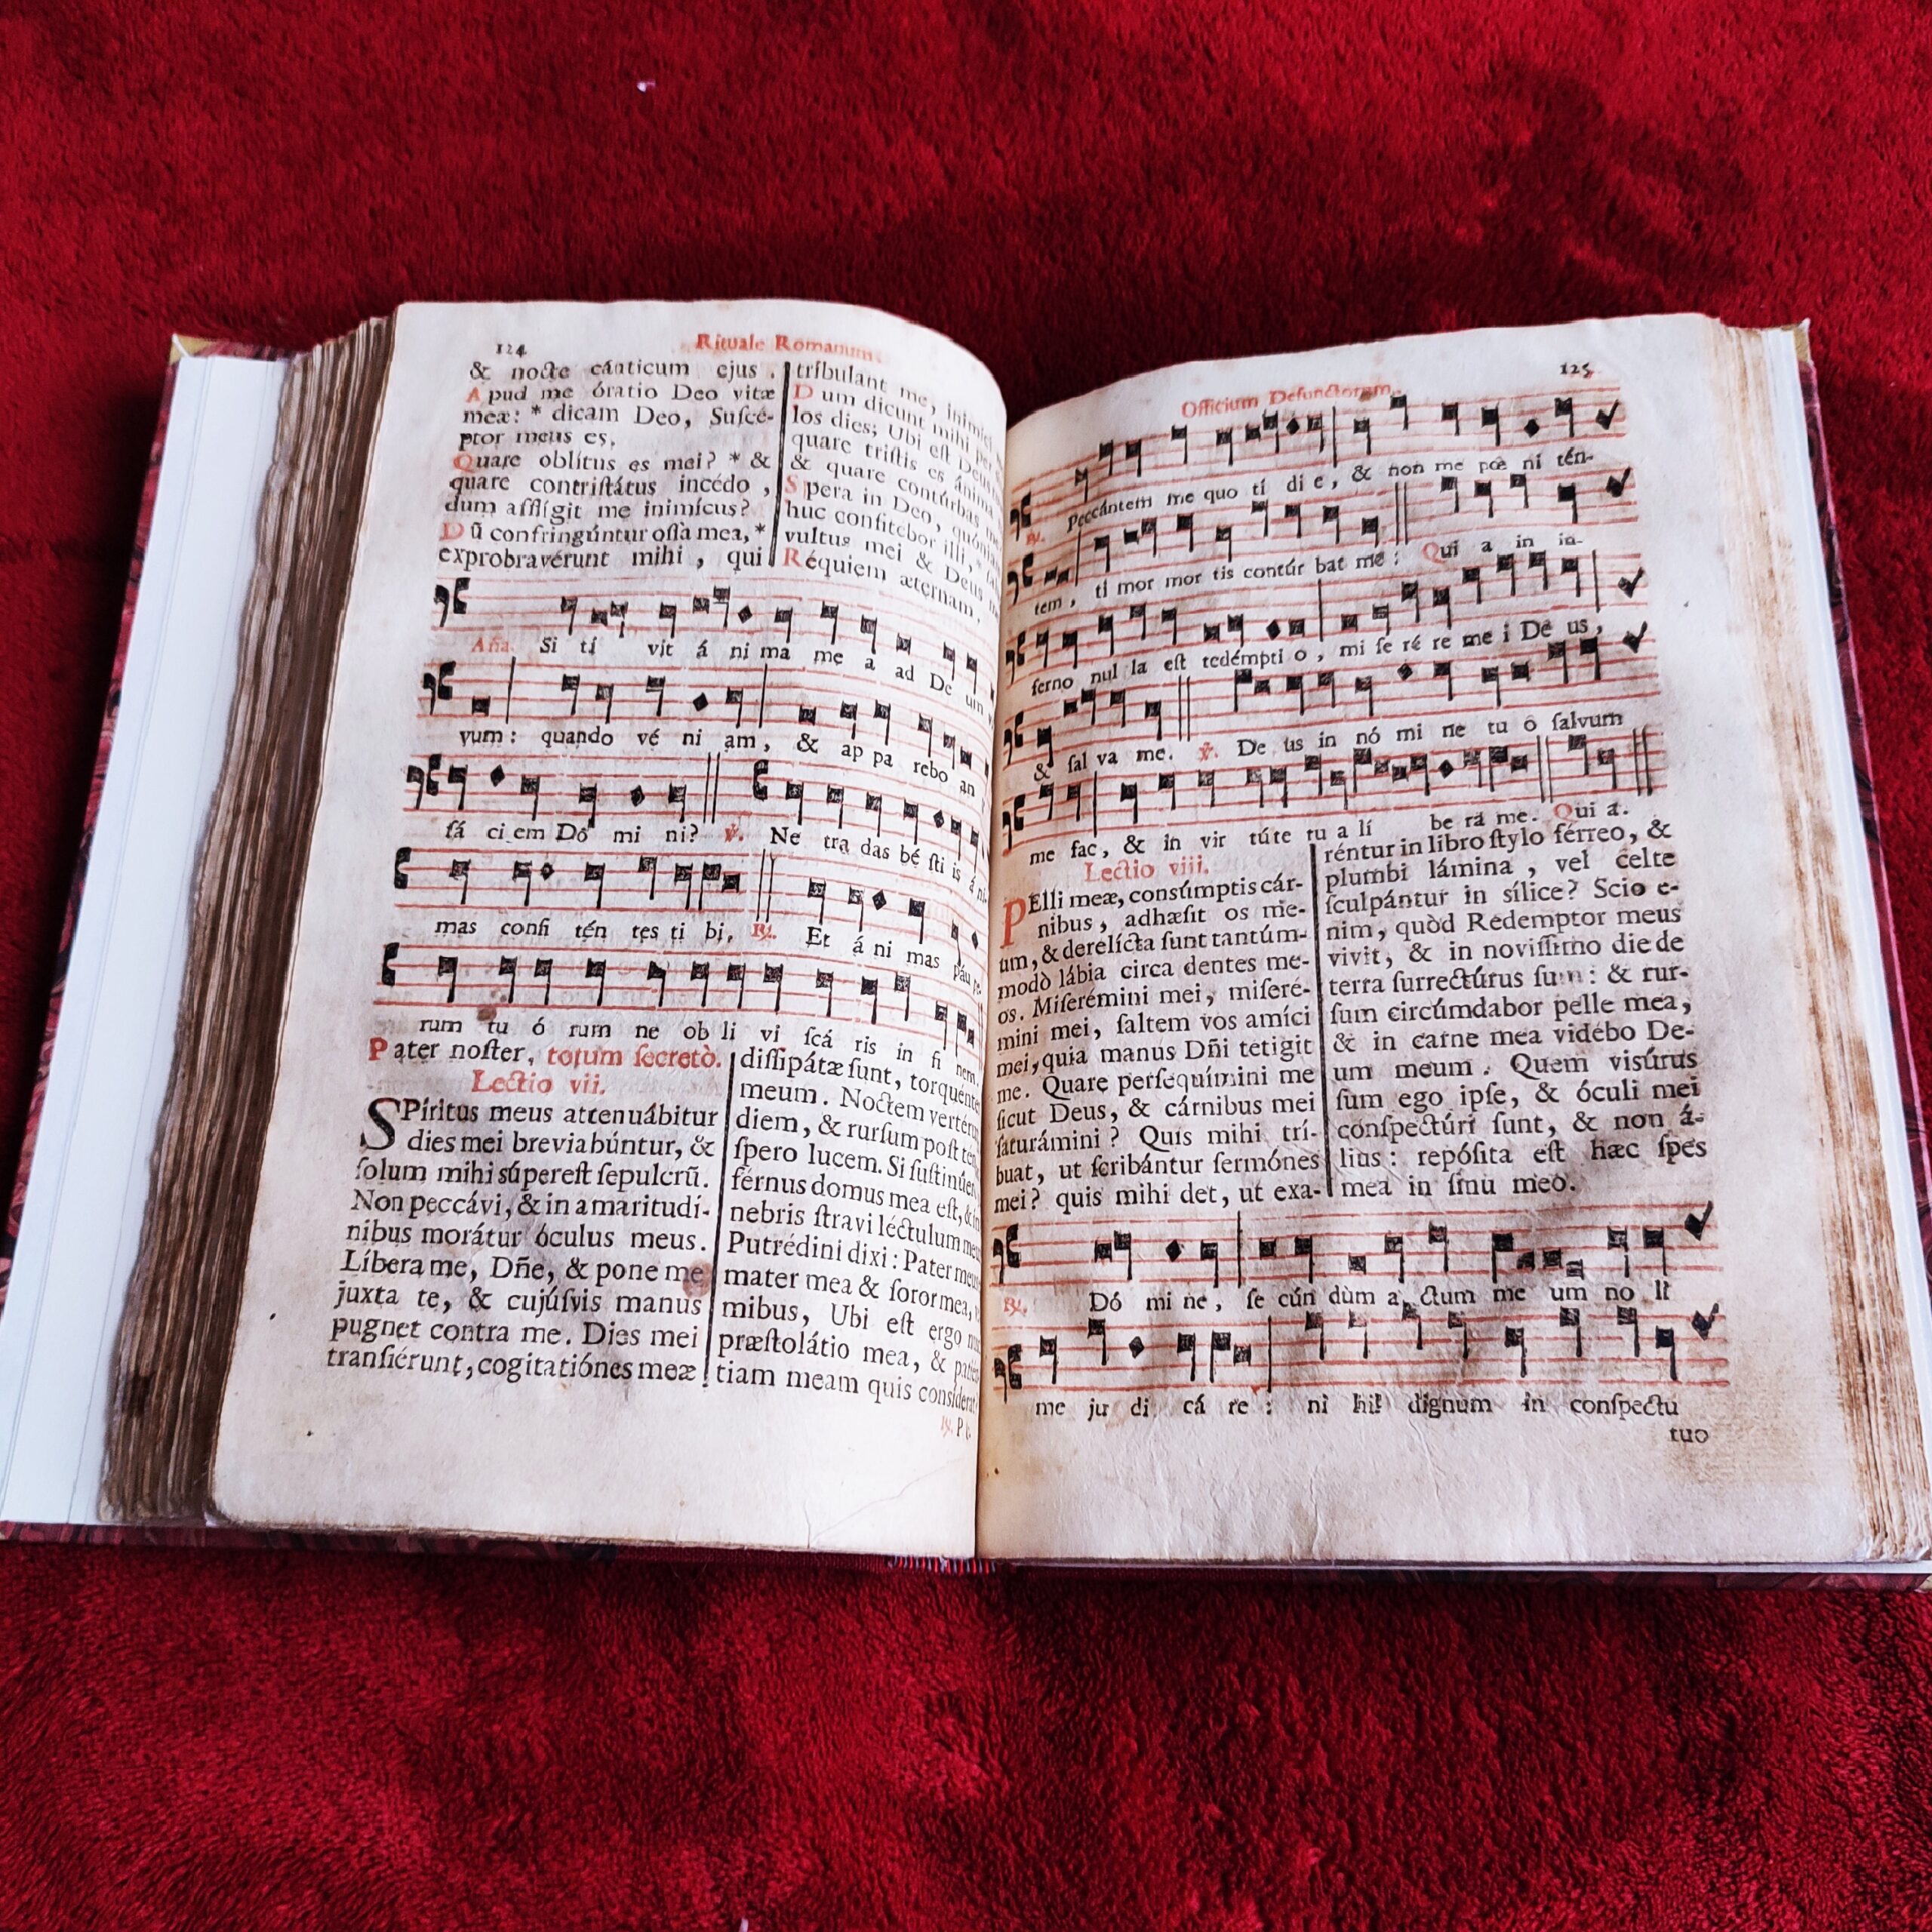 124
Rituale Romanum
& nocte cánticum ejus.
Apud me óratio Deo vitæ
meæ: * dicam Deo, Suſcé-
ptor meus es.
Quare oblítus es mei? * &
quare contriſtátus incédo,
dum afflígit me inimícus?
Dũ confringúntur oſſa mea, *
exprobravérunt mihi, qui
tríbulant me, inimici
Dum dicunt mihi per
los dies; Ubi eſt Deus
quare triſtis es ánima
& quare contúrbas me
Spera in Deo, quóniam
huc confitebor illi, *
vultus mei & Deus
Réquiem æternam.
Aña. Si ti vit á ni ma me a ad De um
vum: quando vé ni am, & ap pa rebo an
fá ci em Dó mi ni? ℣. Ne tra das bé ſti is á ni-
mas confi tén tes ti bi, ℟. Et á ni mas páu pe-
rum tu ó rum ne ob li vi ſcá ris in fi nem.
Pater noſter, totum ſecretò.
Lectio vii.
SPíritus meus attenuábitur
dies mei breviabúntur, &
ſolum mihi súpereſt ſepulcrũ.
Non peccávi, & in amaritudí-
nibus morátur óculus meus.
Líbera me, Dñe, & pone me
juxta te, & cujúſvis manus
pugnet contra me. Dies mei
tranſiérunt, cogitatiónes meæ
diſſipátæ ſunt, torquénte
meum. Noctem vertérun
diem, & rurſum poſt te
ſpero lucem. Si ſuſtinúe
férnus domus mea eſt, & in
nebris ſtravi léctulum me
Putrédini dixi: Pater meus
mater mea & ſoror mea,
mibus, Ubi eſt ergo
præſtolátio mea, & patien
tiam meam quis considerat
℟. Pe-
125
Officium Defunctorum.
℟. Peccántem me quo tí di e, & non me pœ ni tén-
tem, ti mor mor tis contúr bat me: Qui a in in-
ferno nul la eſt redémpti o, mi ſe ré re me i De us,
& ſal va me. ℣. De us in nó mi ne tu o ſalvum
me fac, & in vir túte tu a lí be ra me. Qui a.
Lectio viii.
PElli meæ, consúmptis cár-
nibus, adhæſit os me-
um, & derelícta ſunt tantúm-
modò lábia circa dentes me-
os. Miſerémini mei, miſeré-
mini mei, ſaltem vos amíci
mei, quia manus Dñi tetigit
me. Quare perſequímini me
ſicut Deus, & cárnibus mei
ſaturámini? Quis mihi trí-
buat, ut ſcribántur ſermónes
mei? quis mihi det, ut exa-
réntur in libro ſtylo férreo, &
plumbi lámina, vel celte
ſculpántur in sílice? Scio e-
nim, quòd Redemptor meus
vivit, & in noviſſimo die de
terra ſurrectúrus ſum: & rur-
ſum circúmdabor pelle mea,
& in carne mea vidébo De-
um meum. Quem visúrus
ſum ego ipſe, & óculi mei
conſpectúri ſunt, & non á-
lius: repóſita eſt hæc ſpes
mea in ſinu meo.
℟. Dó mi ne, ſe cún dùm a ctum me um no li
me ju di cá re: ni hil dignum in conſpectu
tuo